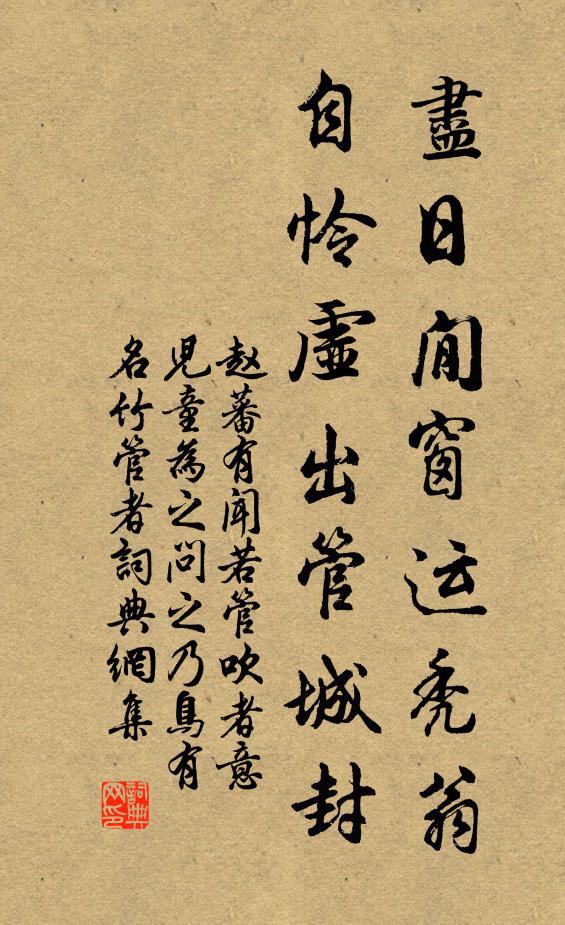 盡日閒窗运秃翁
自怜虛出管城封
赵蕃有闻若管吹者意
児童為之问之乃鳥有
名竹管者詞典網集
詞典网印